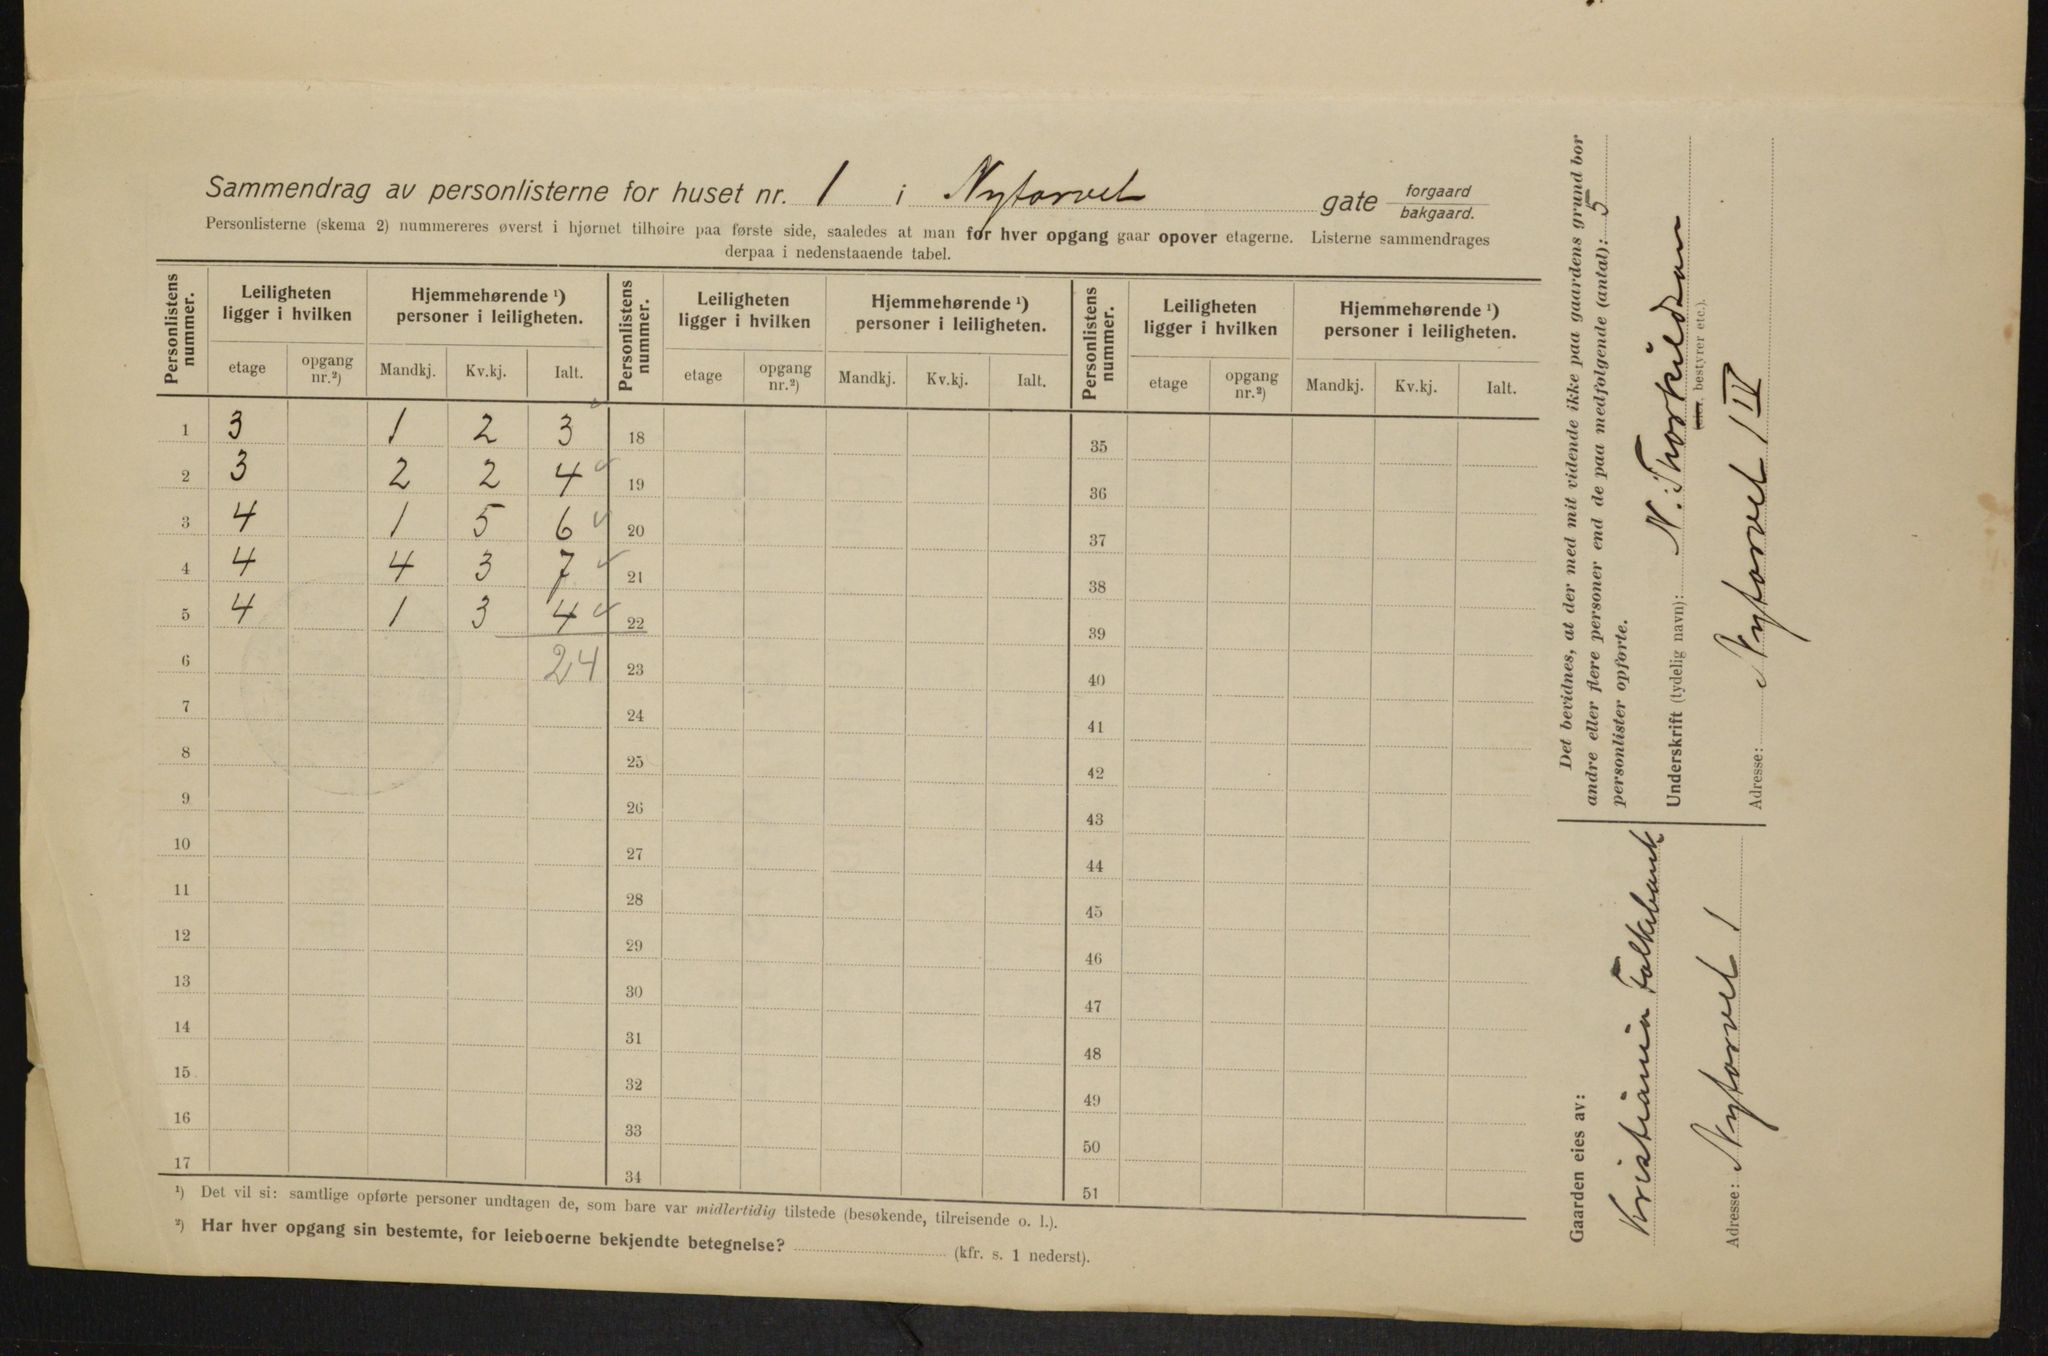 Sammendrag av personlisterne for huset nr. 1 i Nytorvet gate forgaard bakgaard.
Personlisterne (skema 2) nummereres øverst i hjørnet tilhøire paa første side, saaledes at man for hver opgang gaar opover etagerne. Listerne sammendrages
derpaa i nedenstaaende tabel.
Personlistens nummer. Leiligheten ligger i hvilken Hjemmehørende ¹) personer i leiligheten. Personlistens nummer. Leiligheten ligger i hvilken Hjemmehørende ¹) personer i leiligheten. Personlistens nummer. Leiligheten ligger i hvilken Hjemmehørende ¹) personer i leiligheten.
etage opgang nr.²) Mandkj. Kv.kj. Ialt. etage opgang nr.²) Mandkj. Kv.kj. Ialt. etage opgang nr.²) Mandkj. Kv.kj. Ialt.
1 3 1 2 3 18 35
2 3 2 2 4 19 36
3 4 1 5 6 20 37
4 4 4 3 7 21 38
5 4 1 3 4 22 39
6 24 23 40
7 24 41
8 25 42
9 26 43
10 27 44
11 28 45
12 29 46
13 30 47
14 31 48
15 32 49
16 33 50
17 34 51
¹) Det vil si: samtlige opførte personer undtagen de, som bare var midlertidig tilstede (besøkende, tilreisende o. l.).
²) Har hver opgang sin bestemte, for leieboerne bekjendte betegnelse? (kfr. s. 1 nederst).
Det bevidnes, at der med mit vidende ikke paa gaardens grund bor
andre eller flere personer end de paa medfølgende (antal): 5
personlister opførte.
Underskrift (tydelig navn): N. Thorkildsen
bestyrer etc.).
Adresse: Nytorvet 1 IV
Gaarden eies av:
Kristiania Folkebank
Adresse: Nytorvet 1